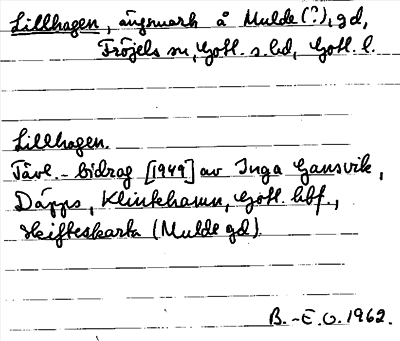 Lillhagen, ängsmark å Mulde (?), gd,
Fröjels sn, Gotl. s. hd, Gotl. l.
Lillhagen.
Tävl.-bidrag [1949] av Inga Gansvik,
Däpps, Klintehamn, Gotl. hbf.,
Skifteskarta (Mulde gd).
B.-E. O. 1962.